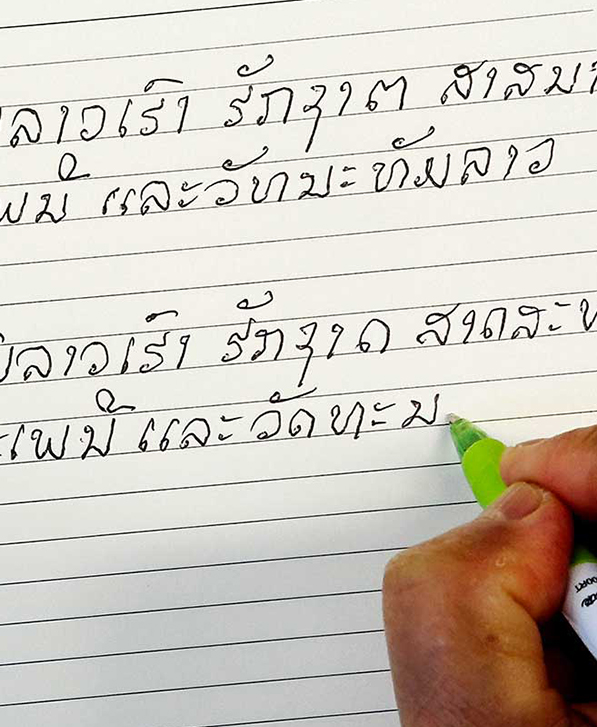 ລາວເຮົາ ຮັກຊາຕ ສາສນາ
ພນີ ແລະວັທນະທັມລາວ
ລາວເຮົາ ຮັກຊາດ ສາດສະ
ະເພນີ ແລະ ວັດທະນ